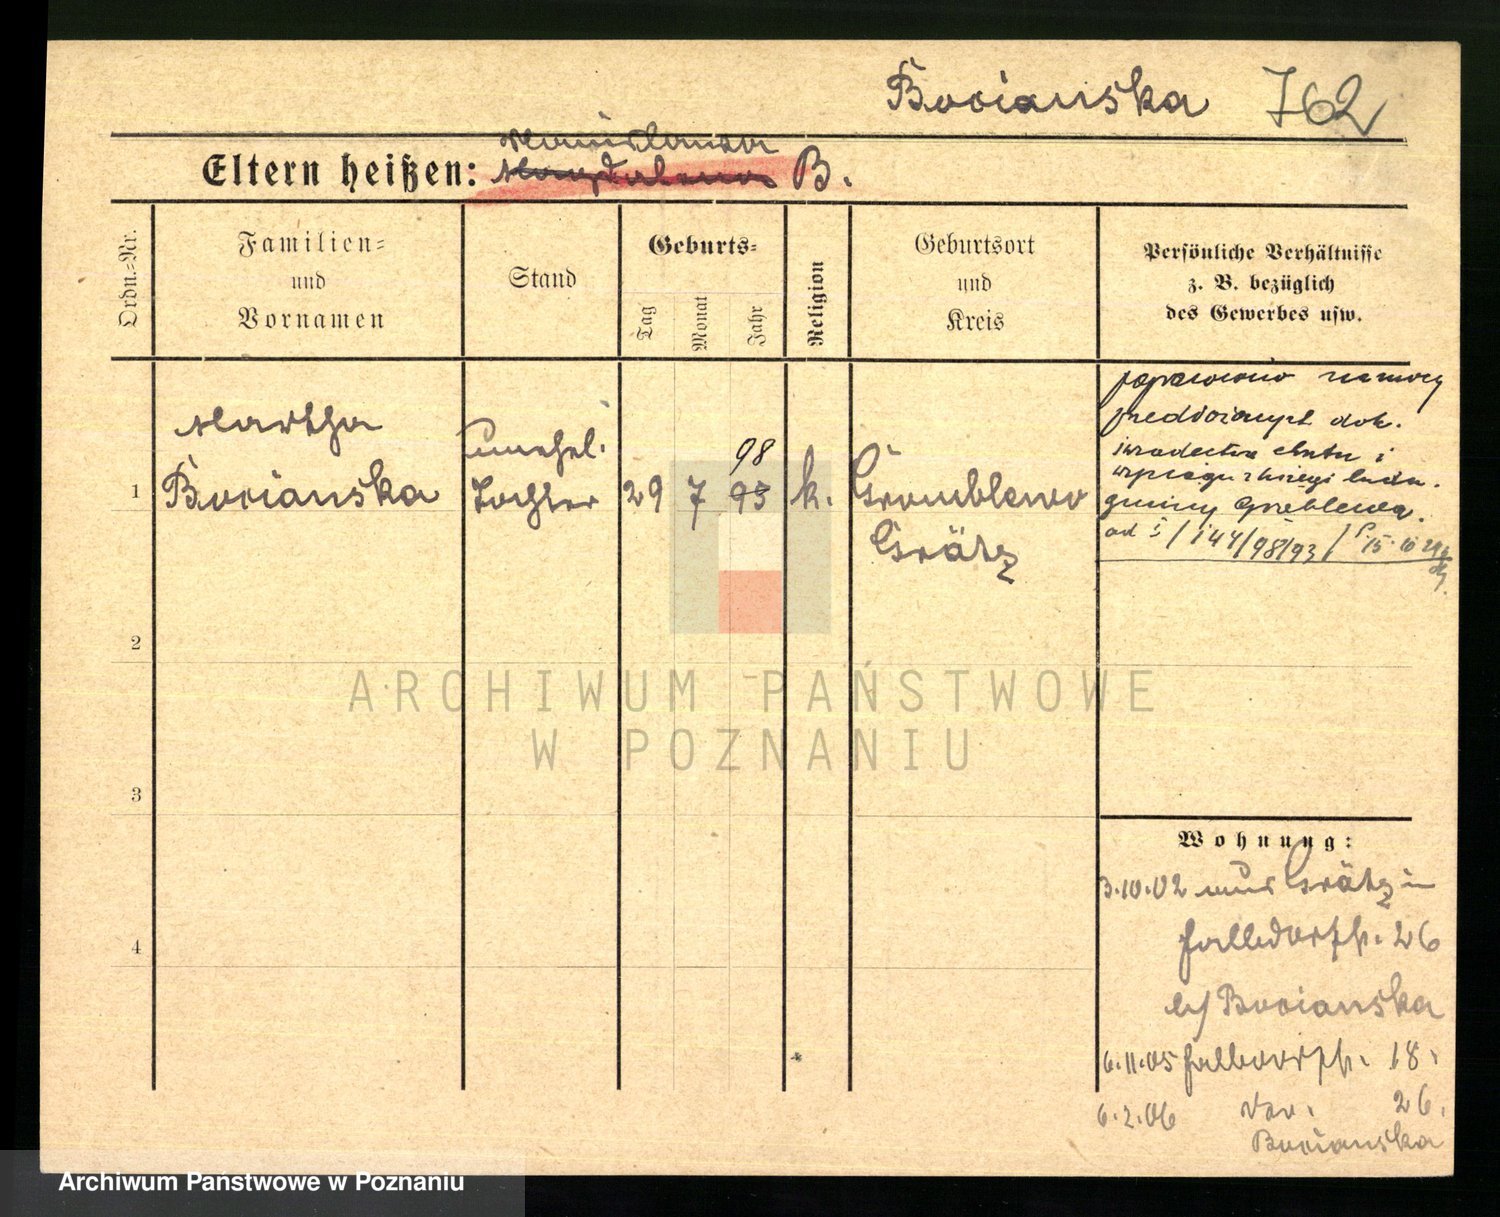 Bocianska 762
Stanislawa
Eltern heißen: Magdalena B.
Ordn.-Nr.
Familien-
und
Vornamen
Stand
Geburts-
Tag
Monat
Jahr
Religion
Geburtsort
und
Kreis
Persönliche Verhältnisse
z. B. bezüglich
des Gewerbes usw.
Martha
1 Bocianska
unehel.
Tochter
29 7 93
98
k.
Gromblewo
Grätz
poprawiono na mocy
przedłożonych dok.
świadectwa chrztu i
gminy
/144/98/93/
2
3
4
Wohnung:
3.10.02 aus Grätz in
26
b/ Bocianska
6.11.05 18.
6.2.06 26.
Bocianska
ARCHIWUM PAŃSTWOWE
W POZNANIU
Archiwum Państwowe w Poznaniu